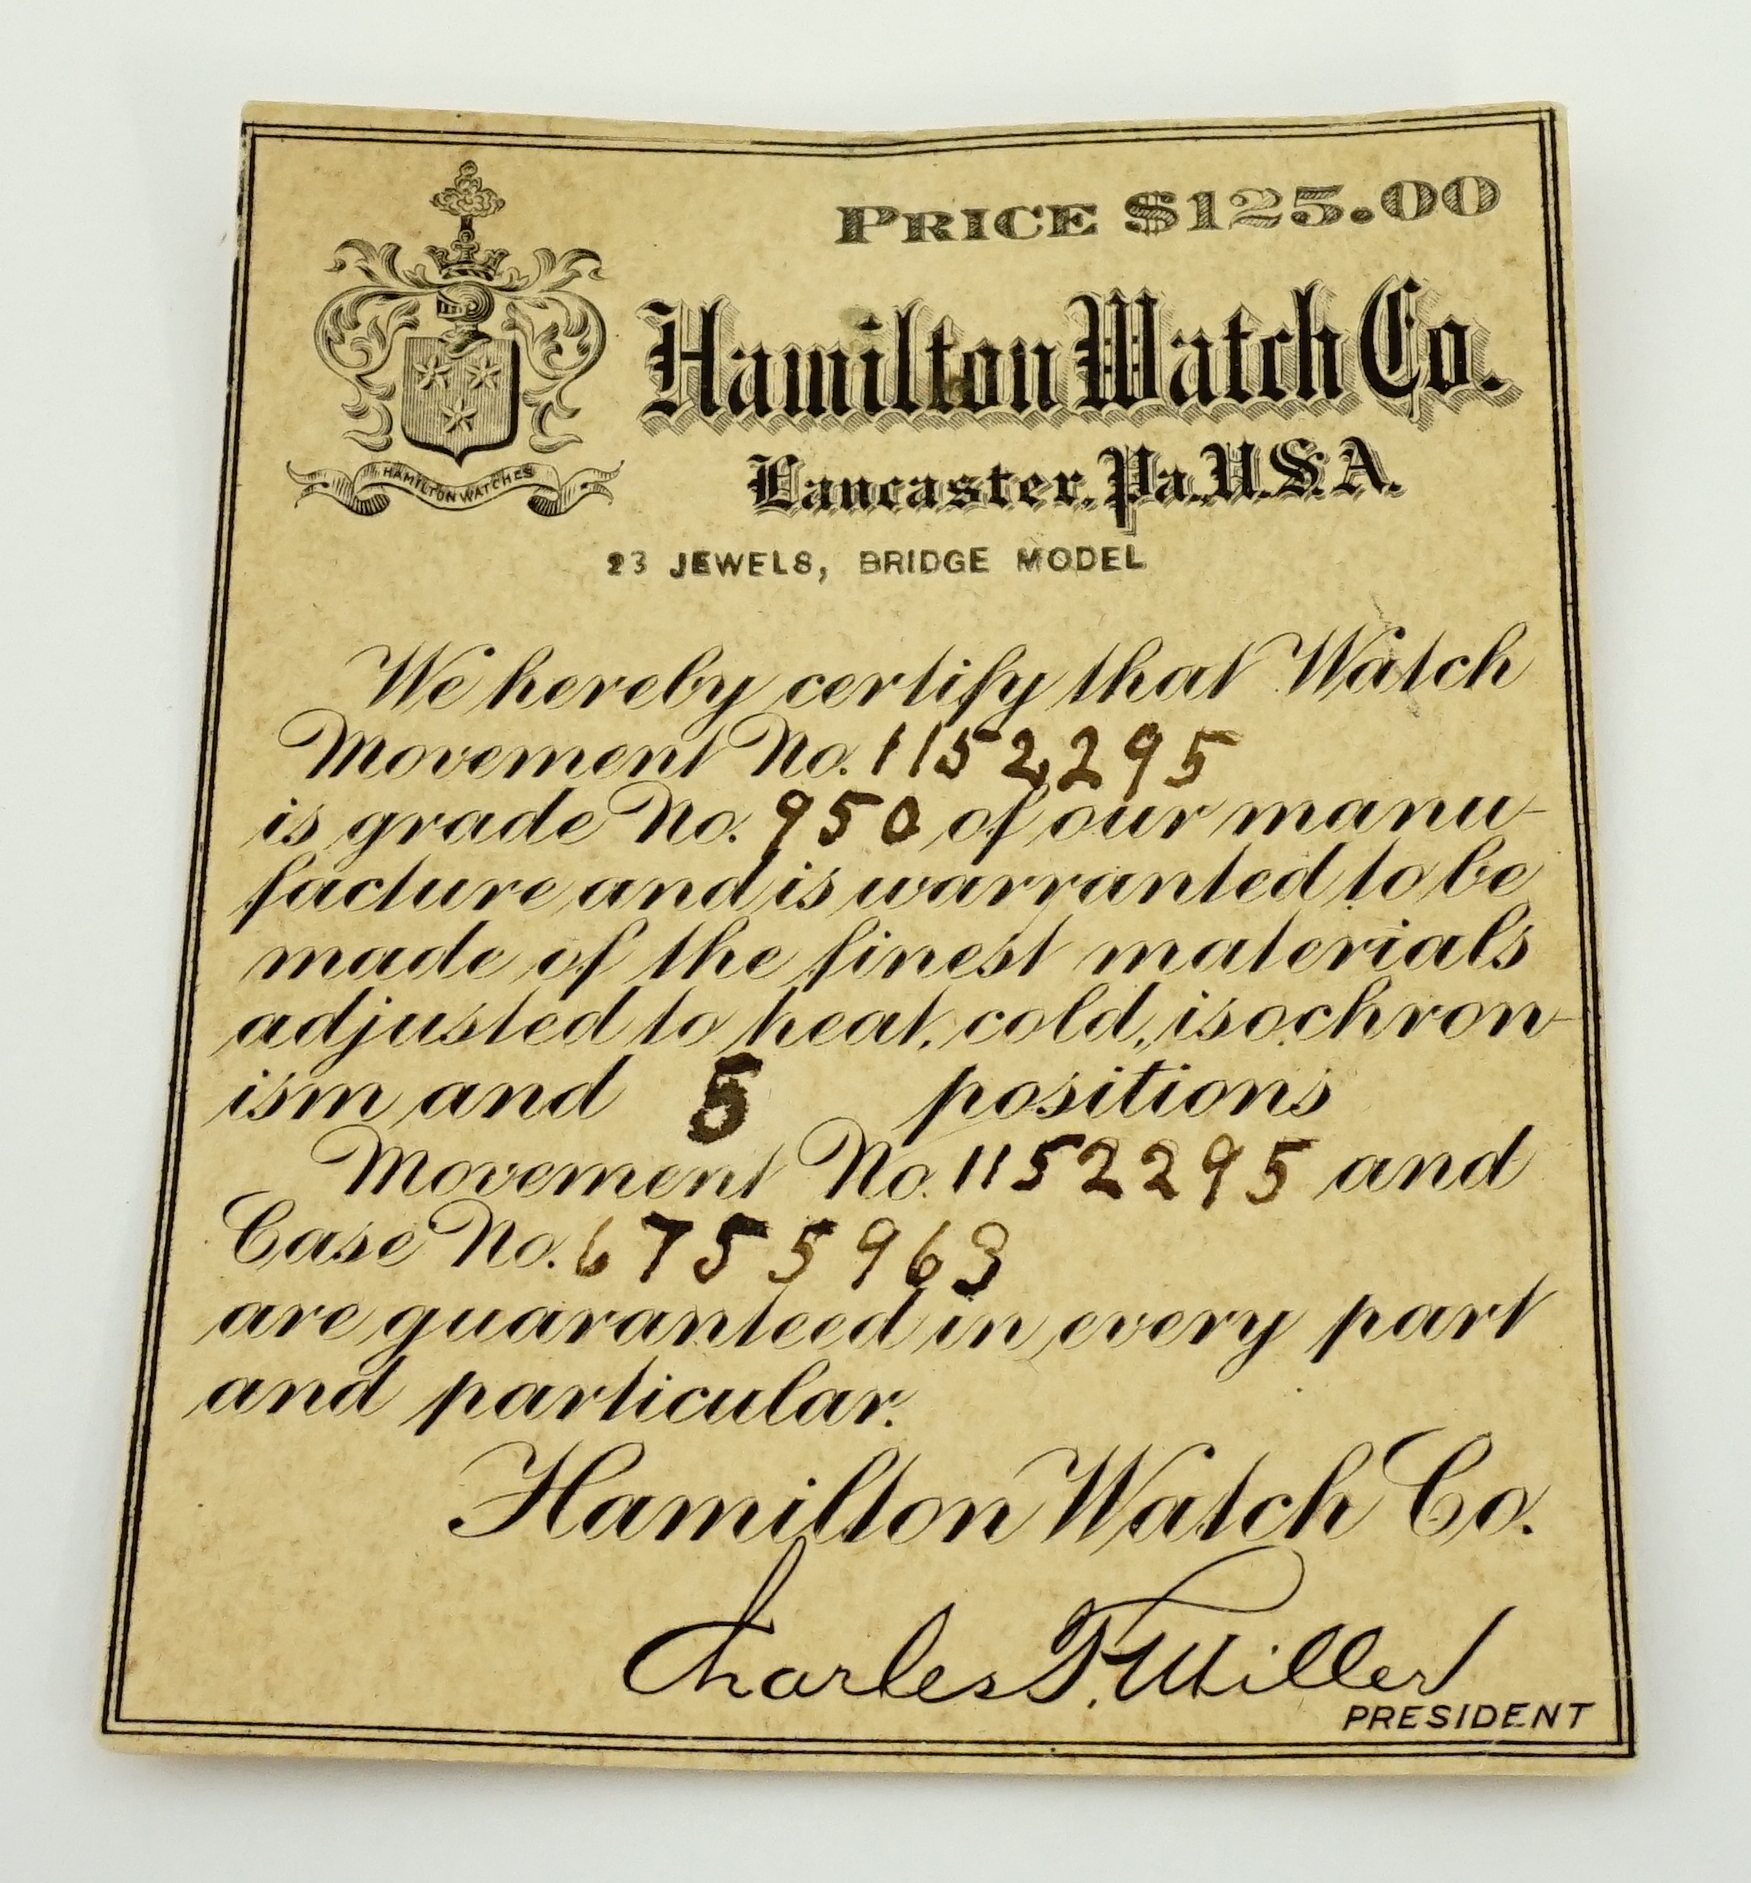 PRICE $125.00
Hamilton Watch Co.
Lancaster, Pa., U.S.A.
HAMILTON WATCHES
23 JEWELS, BRIDGE MODEL
We hereby certify that Watch
Movement No. 1152295
is grade No. 950 of our manu-
facture and is warranted to be
made of the finest materials
adjusted to heat, cold, isochron-
ism and 5 positions
Movement No. 1152295 and
Case No. 6755963
are guaranteed in every part
and particular.
Hamilton Watch Co.
Charles F. Miller
PRESIDENT